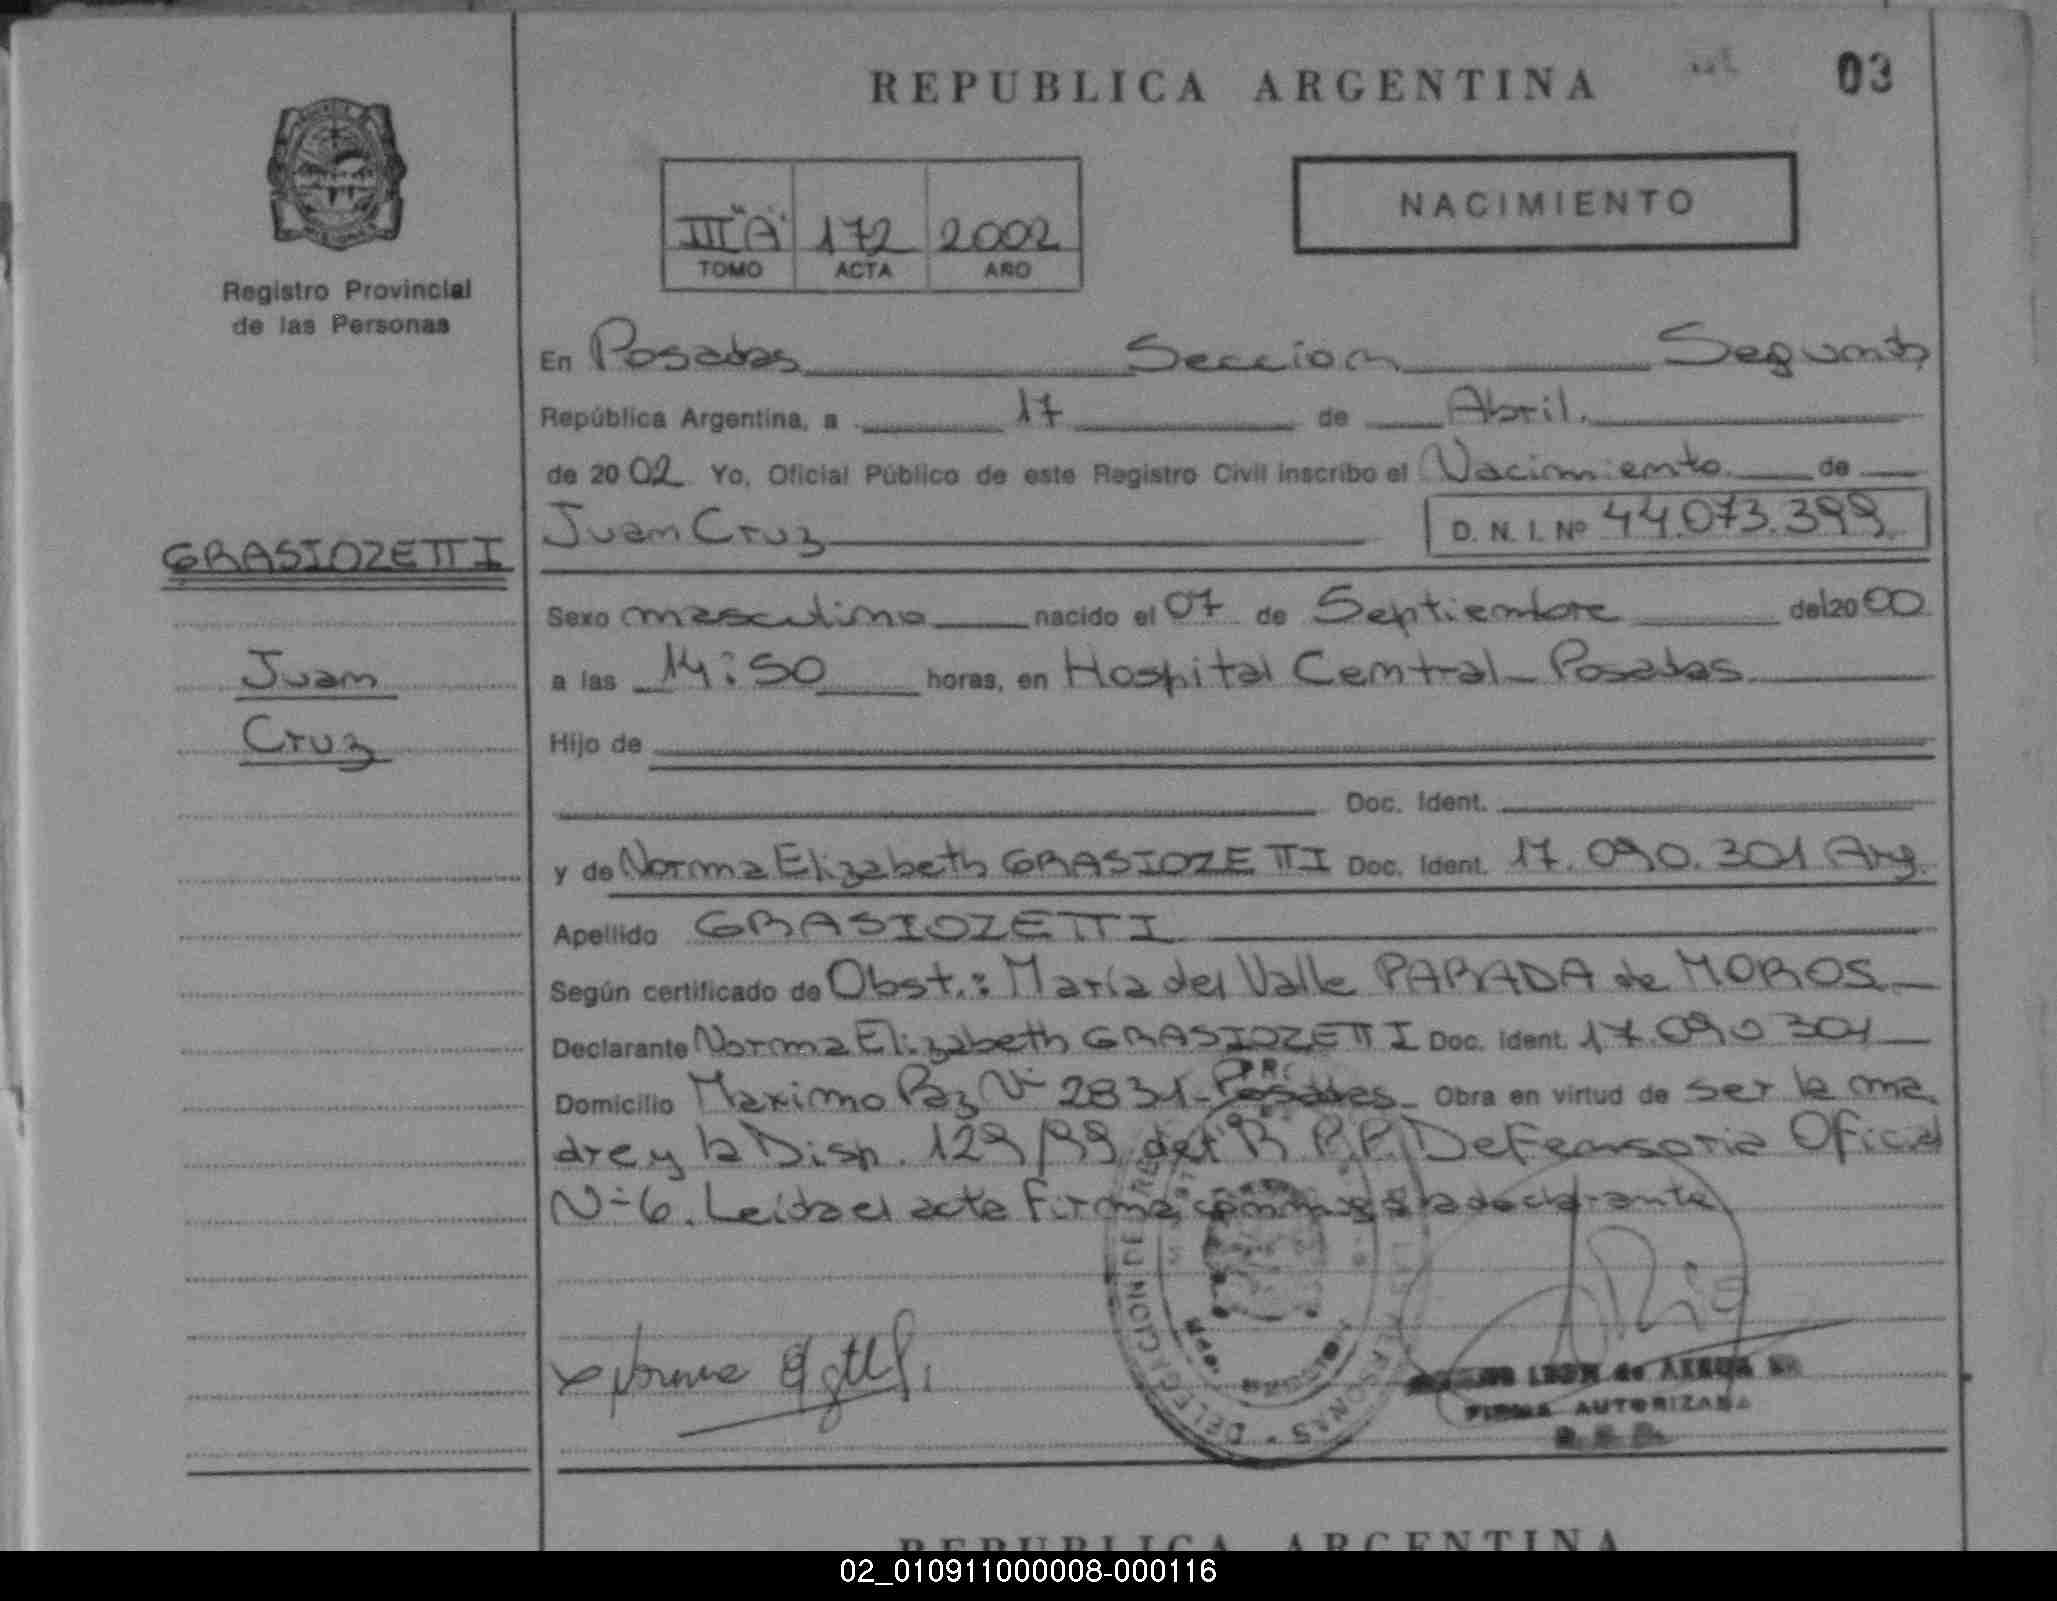 REPUBLICA ARGENTINA
03
III "A" 172 2002
TOMO ACTA AÑO
NACIMIENTO
Registro Provincial
de las Personas
En Posadas Seccion Segunda
República Argentina, a 17 de Abril.
de 2002 Yo, Oficial Público de este Registro Civil inscribo el Nacimiento de
Juan Cruz D. N. I. Nº 44.073.399
GRASIOZETTI
Sexo masculino nacido el 07 de Septiembre del 2000
Juan
a las 14:50 horas, en Hospital Central - Posadas.
Cruz
Hijo de
Doc. Ident.
y de Norma Elizabeth GRASIOZETTI Doc. Ident. 17.090.301 Arg.
Apellido GRASIOZETTI
Según certificado de Obst.: María del Valle PARADA de MOROS
Declarante Norma Elizabeth GRASIOZETTI Doc. Ident. 17.090301
Domicilio Maximo Paz Nº 2831 - Posadas - Obra en virtud de ser la ma
dre y la Disp. 129/99 del R.P.P. Defensoria Oficial
Nº 6. Leida el acta firma conmigo la declarante
DELEGACION DE PERSONAS
LEON de
FIRMA AUTORIZADA
REPUBLICA ARGENTINA
02_010911000008-000116